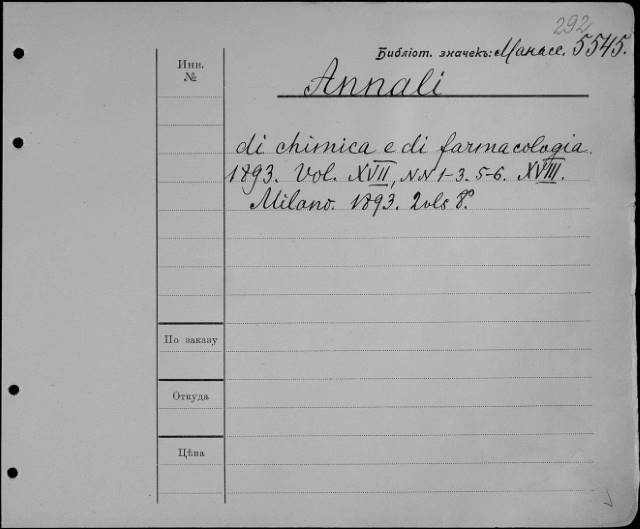 292
Библіот. значекъ: Манасе. 5545.
Инв.
№
Annali
di chimica e di farmacologia.
1893. Vol. XVII, NN 1-3. 5-6. XVIII.
Milano. 1893. 2vls 8°.
По заказу
Откуда
Цѣна